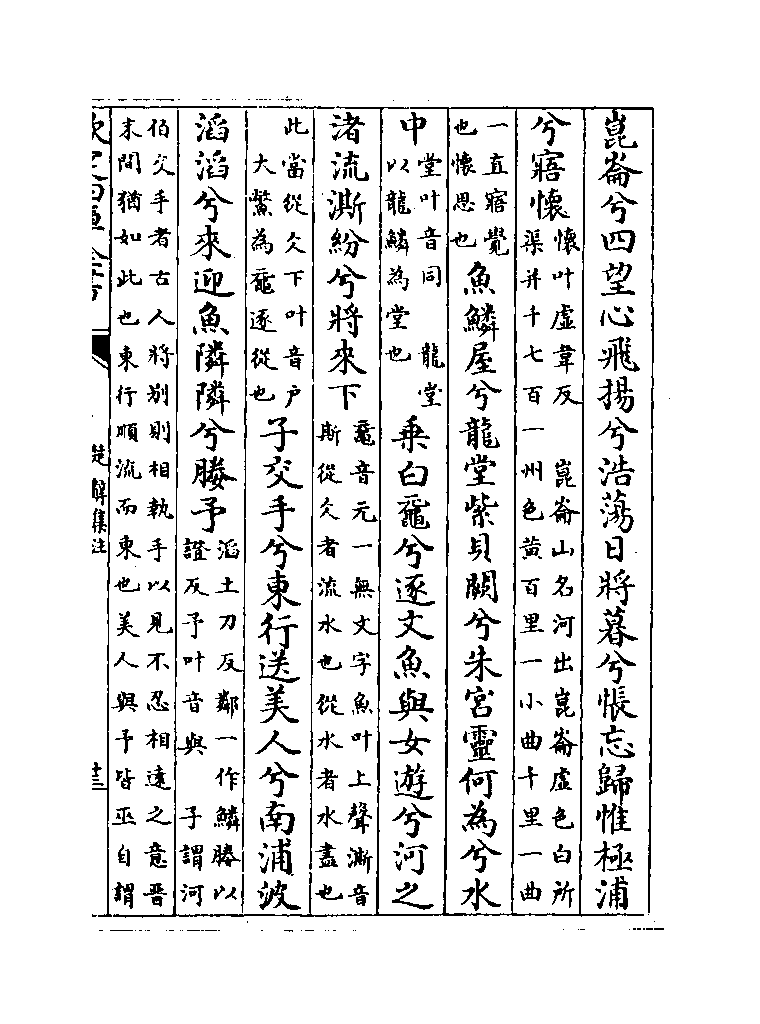 崑崙兮四望心飛揚兮浩蕩日將暮兮悵忘歸惟極浦
兮寤懷
懷叶虛韋反 崑崙山名河出崑崙虛色白所
渠并千七百一州色黃百里一小曲千里一曲
一直寤覺
也懷思也
魚鱗屋兮龍堂紫貝闕兮朱宮靈何為兮水
中
堂叶音同 龍堂
以龍鱗為堂也
乘白黿兮逐文魚與女遊兮河之
渚流澌紛兮將來下
黿音元一無文字魚叶上聲澌音
斯從仌者流水也從水者水盡也
此當從仌下叶音戶
大鱉為黿逐從也
子交手兮東行送美人兮南浦波
滔滔兮來迎魚隣隣兮媵予
滔土刀反鄰一作鱗媵以
證反予叶音與 子謂河
伯交手者古人將別則相執手以見不忍相遠之意晉
末間猶如此也東行順流而東也美人與予皆巫自謂
欽定四庫全書
楚辭集注